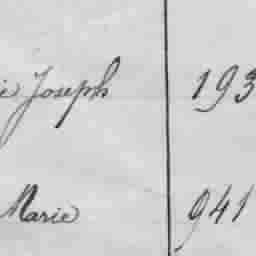 ie Joseph 193
Marie 941